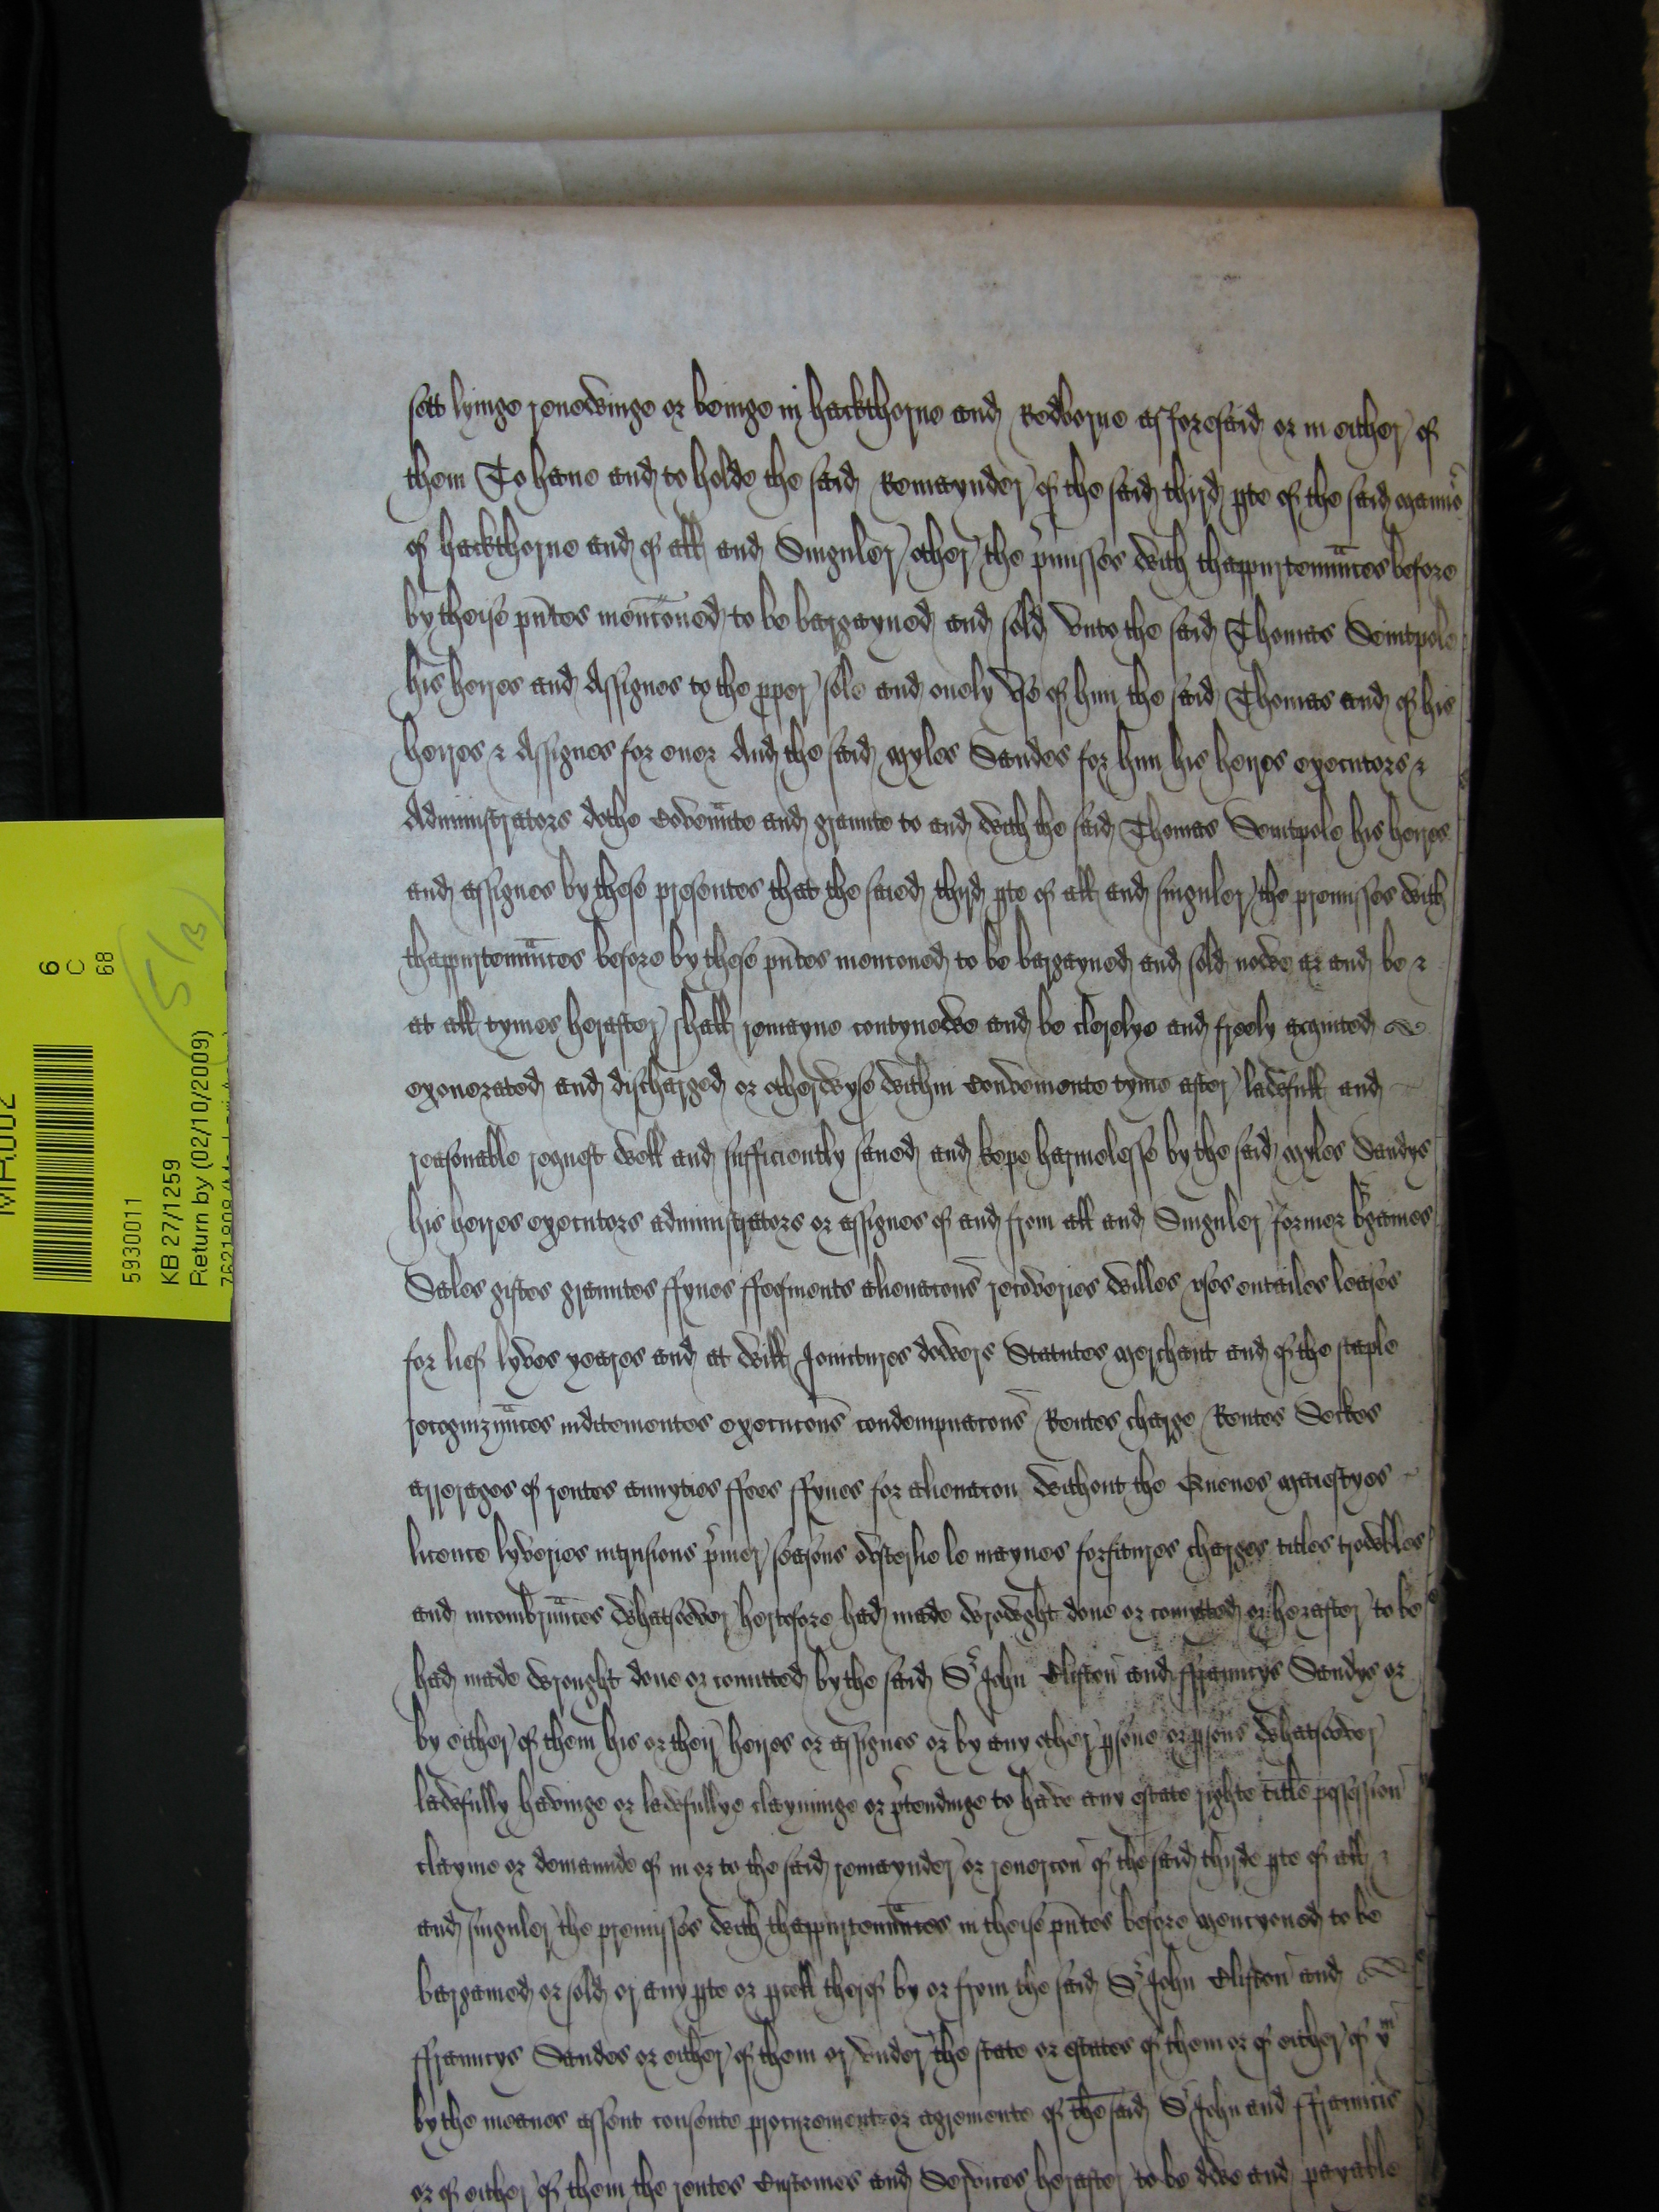 sett lyinge renewinge or beinge in hackthorne and Redborne as foresaid or in either of
them To haue and to holde the said Remaynder of the said third pte of the said mannor
of hackthorne and of all and Singuler other the pmisses with thappurtennaces before
by theise pntes mencioned to be bargayned and sold vnto the said Thomas Seintpole
his heires and Assignes to the pper sole and onely vse of hym the said Thomas and of his
heires & Assignes for euer And the said Myles Sandes for hym his heires executors &
Administrators dothe Covennte and graunte to and with the said Thomas Seintpole his heires
and assignes by these presentes that the saied third pte of all and singuler the premisses with
thappurtennaces before by these pntes mencioned to be bargayned and sold nowe ar and be &
at all tymes herafter shall remayne contynewe and be clerelye and freely acquited
exonerated and discharged or otherwyse within Convenients tyme after lawfull and
reasonable request well and sufficiently saued and kepe harmelesse by the said Myles Sandys
his heires executors administrators or assignes of and from all and Singuler former bgaines
Sales giftes grauntes ffynes ffeofments alienacons recoveries willes vses entailes leases
for lief lyves yeares and at will Joinctures dowers Statutes merchant and of the staple
recogniznaces inditementes execucons condempnacons Rentes charge Rentes Seckes
arrerages of rentes annyties ffees ffynes for alienacon without the Quenes maiestyes
licence lyveries intrusions pmer seasons osterlie le maynes forfaitures charges titles trowbles
and incombrnaces whatsoever hertofore had made wrowght done or comytted or herafter to be
had made wrought done or comitted by the said Sr John Clifton and ffrauncys Sandys or
by either of them his or their heires or assignes or by any other psone or psons whatsoever
lawfully havinge or lawfullye clayminge or ptendinge to have any estate righte title possession
clayme or demaunde of in or to the said remaynder or reuercon of the said thirde pte of all &
and singuler the premisses with thappurtennaces in theise pntes before mencyoned to be
bargained or sold or any pte or pcell therof by or from the said Sr John Clifton and
ffrauncys Sandes or either of them or vnder the state or estates of them or of either of ym
by the meanes assent consente procurement or agremente of the said Sr John and ffrauncis
or of either of them the rentes Customes and Services herafter to be dwe and payable
6
C
68
5/13
5930011
KB 27/1259
Return by (02/10/2009)